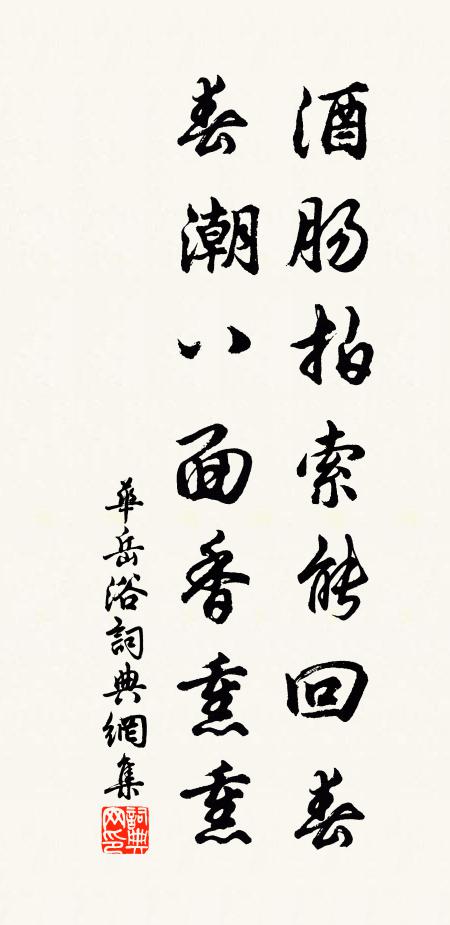 酒肠拍索能回春
春潮八面香熏熏
華岳浴詞典網集
詞典网印